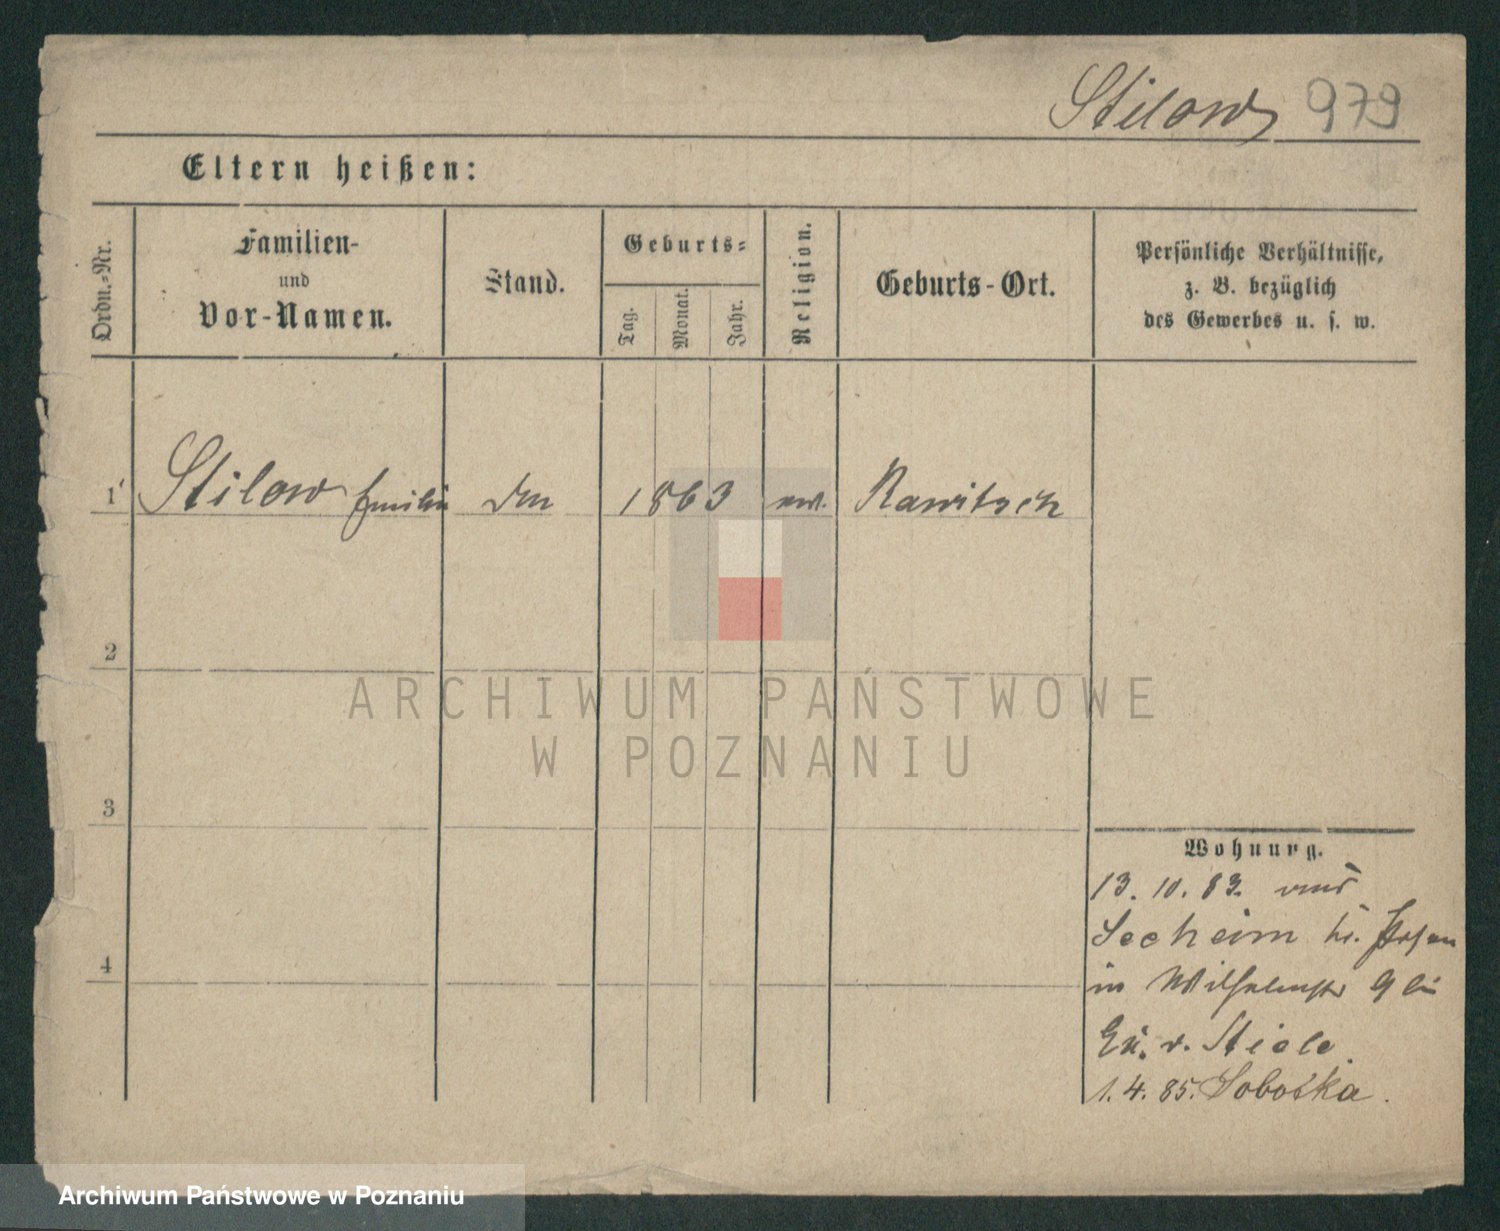 Stilow 979
Eltern heißen:
Ordn.-Nr.
Familien-
und
Vor-Namen.
Stand.
Geburts-
Tag.
Monat.
Jahr.
Religion.
Geburts-Ort.
Persönliche Verhältnisse,
z. B. bezüglich
des Gewerbes u. s. w.
1 Stilow Emilie 1863 Rawitsch
2
3
4
Wohnung.
13. 10. 83. aus
Seeheim Kr. Posen
in Wilhelmstr 9 bei
v. Stiele.
1. 4. 85. Sobotka.
ARCHIWUM PAŃSTWOWE
W POZNANIU
Archiwum Państwowe w Poznaniu